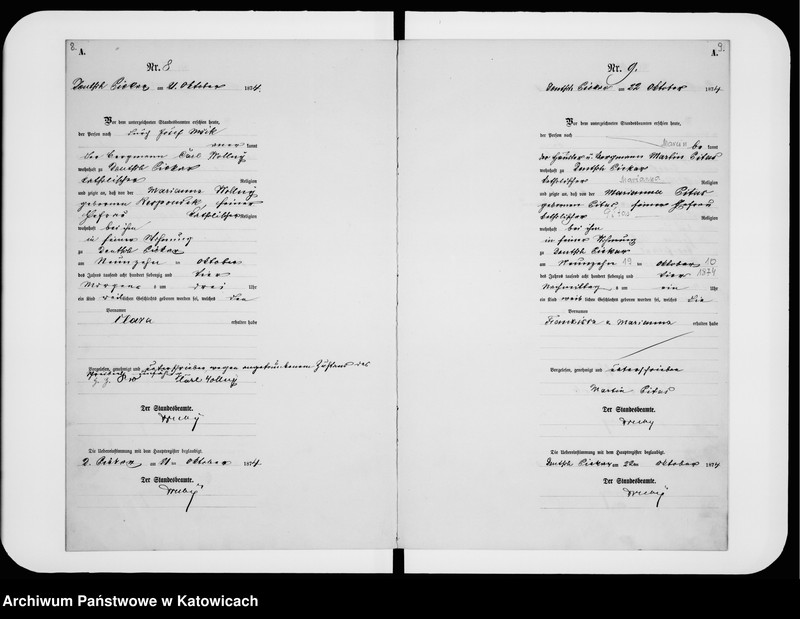 8.
A.
Nr. 8
Deutsch Piekar am 21 Oktober 1874.
Vor dem unterzeichneten Standesbeamten erschien heute,
der Person nach durch Josef
kannt
der Bergmann Carl Wollny
wohnhaft zu Deutsch Piekar
katholischer Religion
und zeigte an, daß von der Marianna Wollny
geborenen seiner
Ehefrau katholischer Religion
wohnhaft bei ihm
in seiner Wohnung
zu Deutsch Piekar
am Neunzehn ten Oktober
des Jahres tausend acht hundert siebenzig und vier
Morgens um drei Uhr
ein Kind weiblichen Geschlechts geboren worden sei, welches den
Vornamen
Clara erhalten habe
Vorgelesen, genehmigt und unterschrieben wegen angetrunkenem Zustand des
Karl Wollny
Der Standesbeamte.
Die Uebereinstimmung mit dem Hauptregister beglaubigt.
D. Piekar am 21ten Oktober 1874
Der Standesbeamte.
9.
A.
Nr. 9.
Deutsch Piekar am 22 Oktober 1874
Vor dem unterzeichneten Standesbeamten erschien heute,
der Person nach
Marcin be kannt
der Häusler u. Bergmann Martin Pitas
wohnhaft zu Deutsch Piekar
katholischer Marianna Religion
und zeigte an, daß von der Marianna Pitas
geborenen Pitas seiner Ehefrau
katholischer Pitas Religion
wohnhaft bei ihm
in seiner Wohnung
zu Deutsch Piekar
am Neunzehn 19 ten Oktober 10
des Jahres tausend acht hundert siebenzig und vier 1874
Nachmittag um ein Uhr
ein Kind weiblichen Geschlechts geboren worden sei, welches die
Vornamen
Franziska u Marianna erhalten habe
Vorgelesen, genehmigt und unterschrieben
Martin Pitas
Der Standesbeamte.
Die Uebereinstimmung mit dem Hauptregister beglaubigt.
Deutsch Piekar am 22ten Oktober 1874
Der Standesbeamte.
Archiwum Państwowe w Katowicach